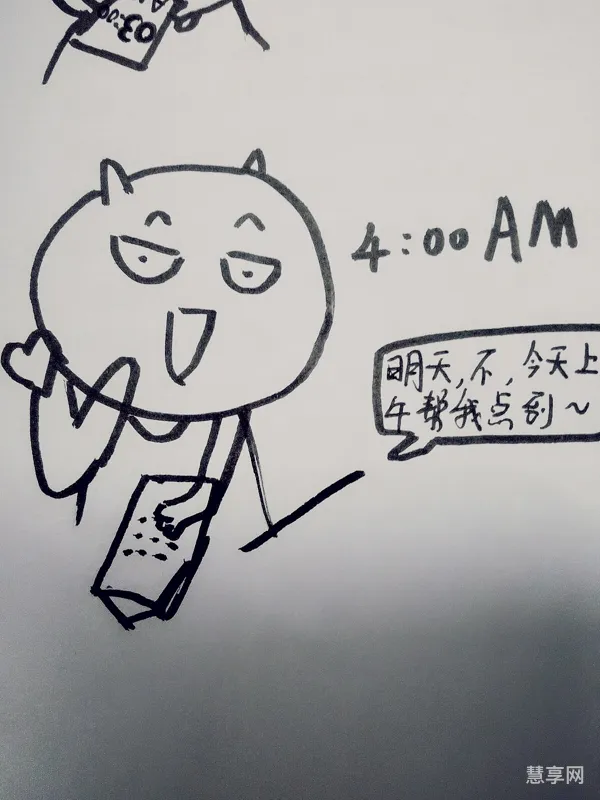 03:00
4:00 AM
明天,不,今天上
午帮我点到~
慧享网